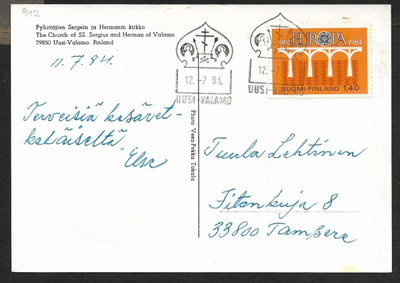 942
Pyhittäjien Sergein ja Hermanin kirkko
The Church of SS. Sergius and Herman of Valamo
79850 Uusi-Valamo. Finland.
11.7.84.
Terveisiä kesävet-
keläiseltä.
Else
Photo Vesa-Pekka Takala
12.-7.84
UUSI-VALAMO
12.-7
UUSI-VALAMO
EUROPA
1984
SUOMI FINLAND 1,40
Tuula Lehtinen
Titankuja 8
33800 Tampere